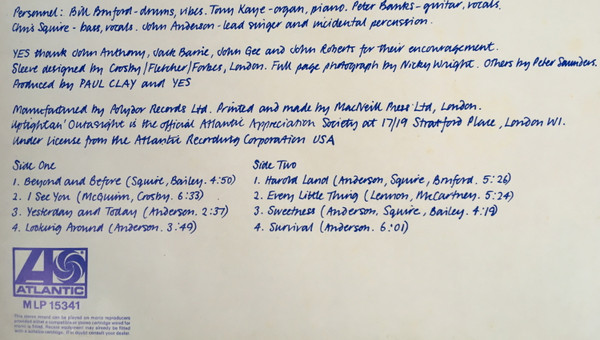 Personnel: Bill Bruford-drums, vibes. Tony Kaye-organ, piano. Peter Banks-guitar, vocals.
Chris Squire - bass, vocals. John Anderson-lead singer and incidental percussion.
YES thank John Anthony, Jack Barrie, John Gee and John Roberts for their encouragement.
Sleeve designed by Crosby/Fletcher/Forbes, London. Full page photograph by Nicky Wright. Others by Peter Saunders.
Produced by PAUL CLAY and YES
Manufactured by Polydor Records Ltd. Printed and made by MacNeill Press Ltd, London.
Uptightan' Outasight is the official Atlantic Appreciation Society at 17/19 Stratford Place, London W1.
Under license from the Atlantic Recording Corporation USA
Side One
1. Beyond and Before (Squire, Bailey. 4:50)
2. I See You (McGuinn, Crosby. 6:33)
3. Yesterday and Today (Anderson. 2:37)
4. Looking Around (Anderson. 3:49)
Side Two
1. Harold Land (Anderson, Squire, Bruford. 5:26)
2. Every Little Thing (Lennon, McCartney. 5:24)
3. Sweetness (Anderson. Squire, Bailey. 4:19)
4. Survival (Anderson. 6:01)
ATLANTIC
MLP 15341
This stereo record can be played on mono reproducers
provided either a compatible or stereo cartridge wired for
mono is fitted. Recent equipment may already be fitted
with a suitable cartridge. If in doubt consult your dealer.